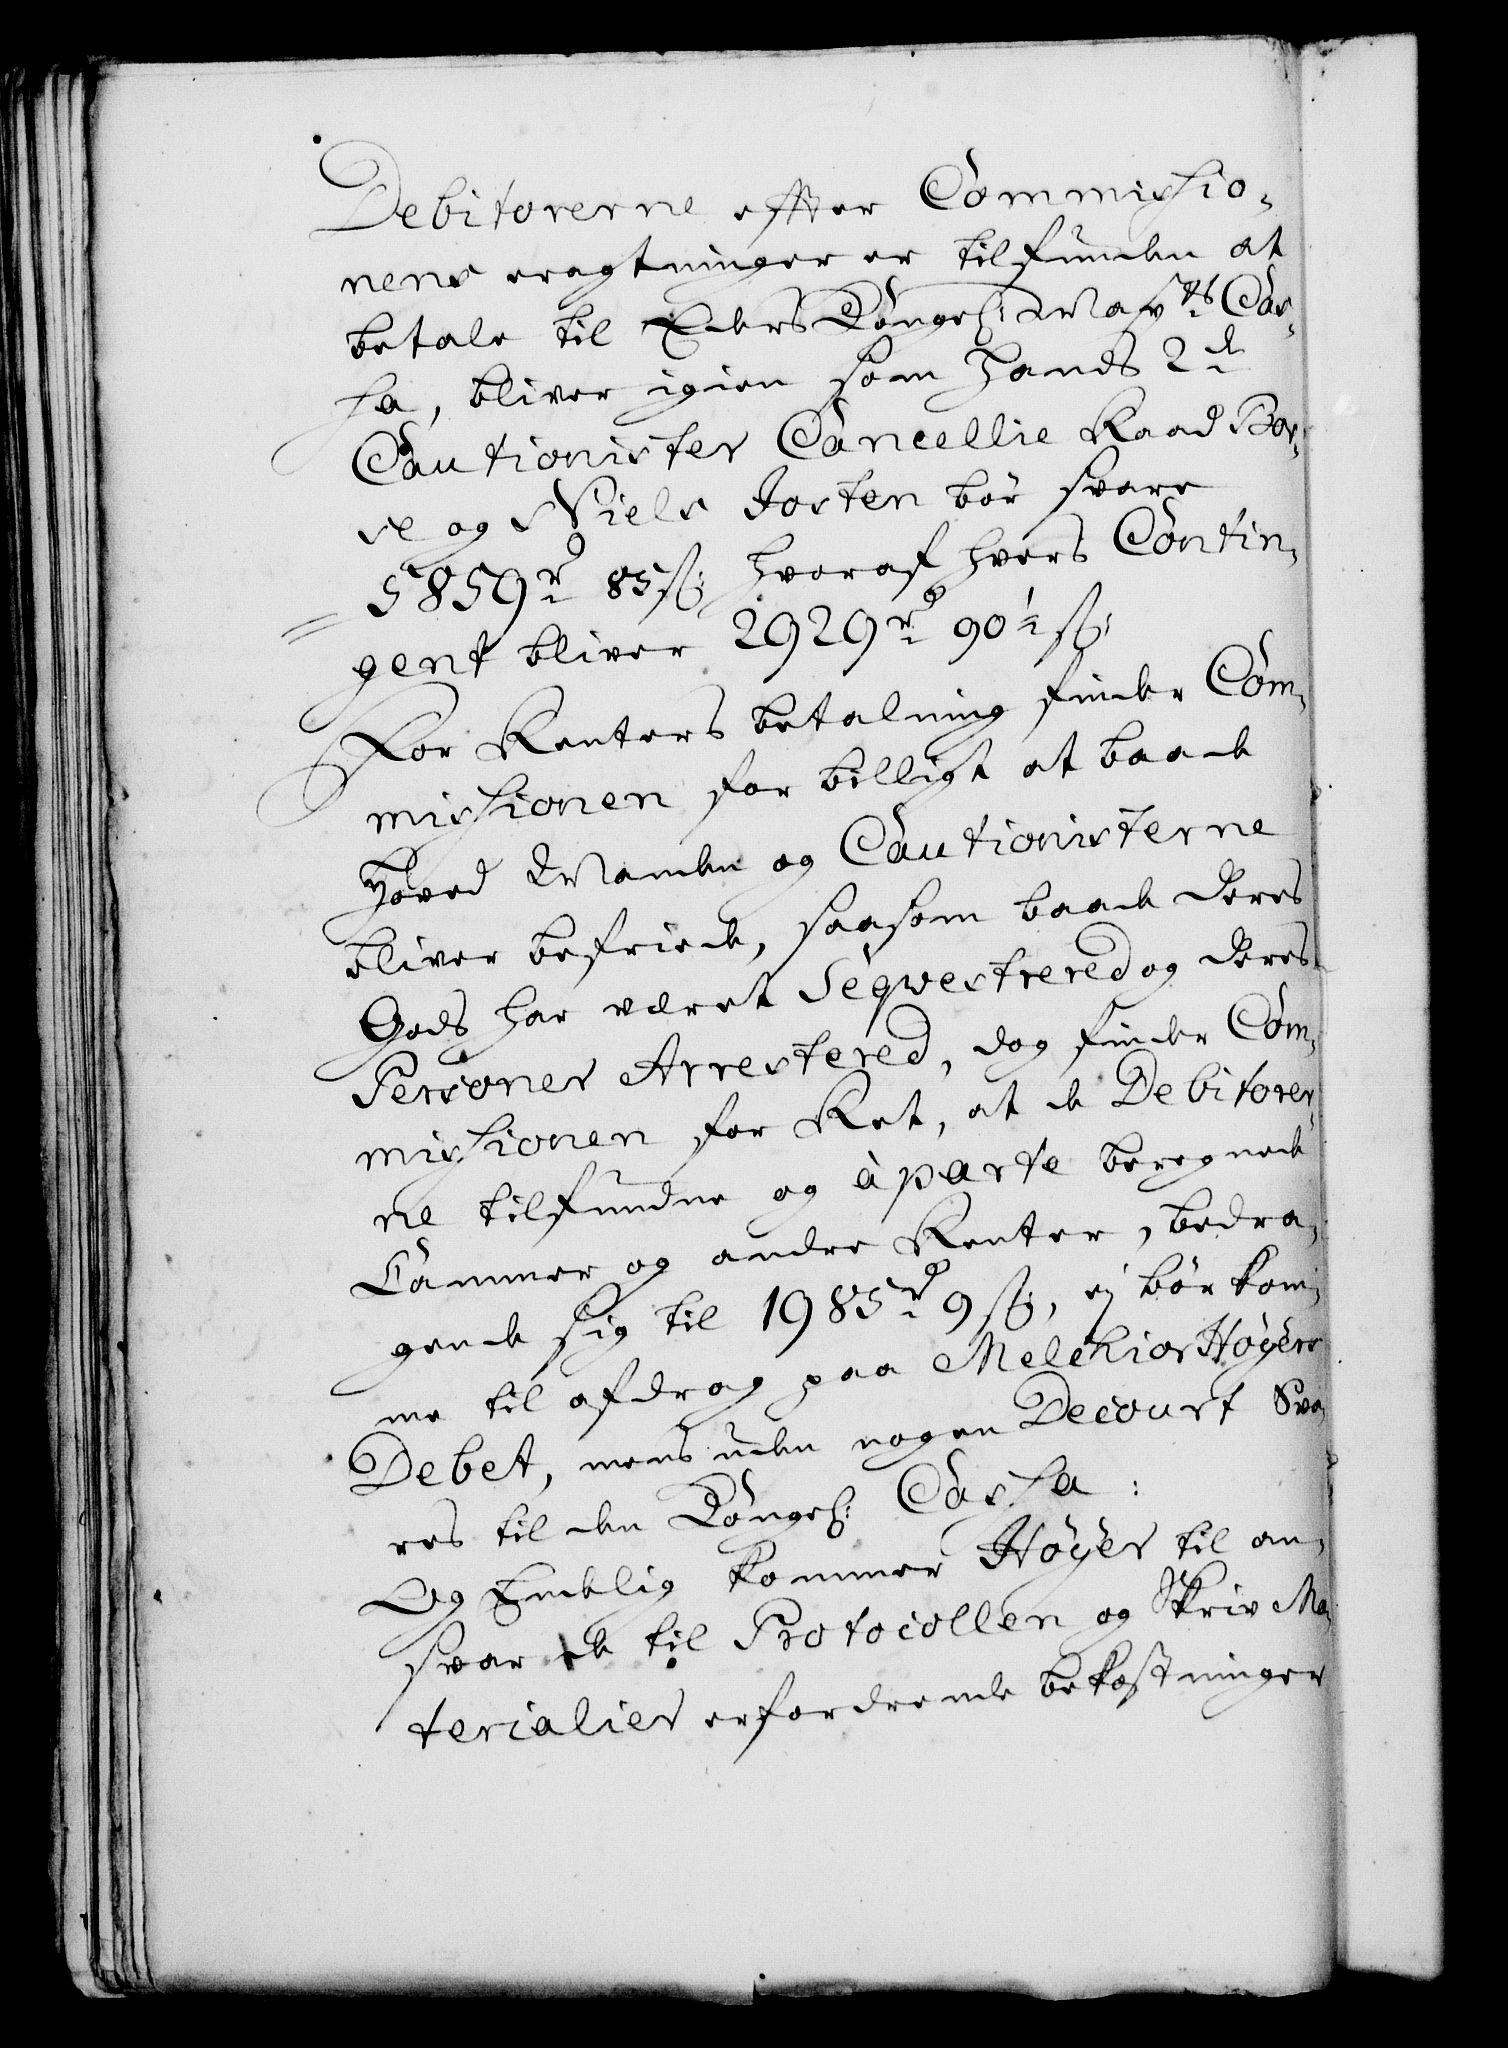 Debitorerne efter Commissio-
nens eragtninger er tilfunden at
betale til Eders Kongel: May:ts Cas-
sa, bliver igien som hands 2de
Cautionister Cancellie Raad Bor-
se og Niels Josten bør svare
5859 rd 85 sk: hvoraf hvers Contin-
gent bliver 2929 rd 90½ sk:
For Renters betalning finder Com-
missionen for billigt at baade
Hoved Manden og Cautionisterne
bliver befriede, saasom baade deres
Gods har været Seqvestrered og deres
Personer Arrestered, dog finder Com-
missionen for Ret, at de Debitorer-
ne tilfundne og àparte beregnede
Cammer og andre Renter, bedra-
gende sig til 1985 rd 9 sk, ej bør kom-
me til afdrag paa Melchior Høyers
Debet, mens uden nogen Decourt Sva-
res til den Kongel: Cassa:
Og Endelig kommer Høyer til an-
svar de til Protocollen og Skriv Ma-
terialier erfordrende bekostninger